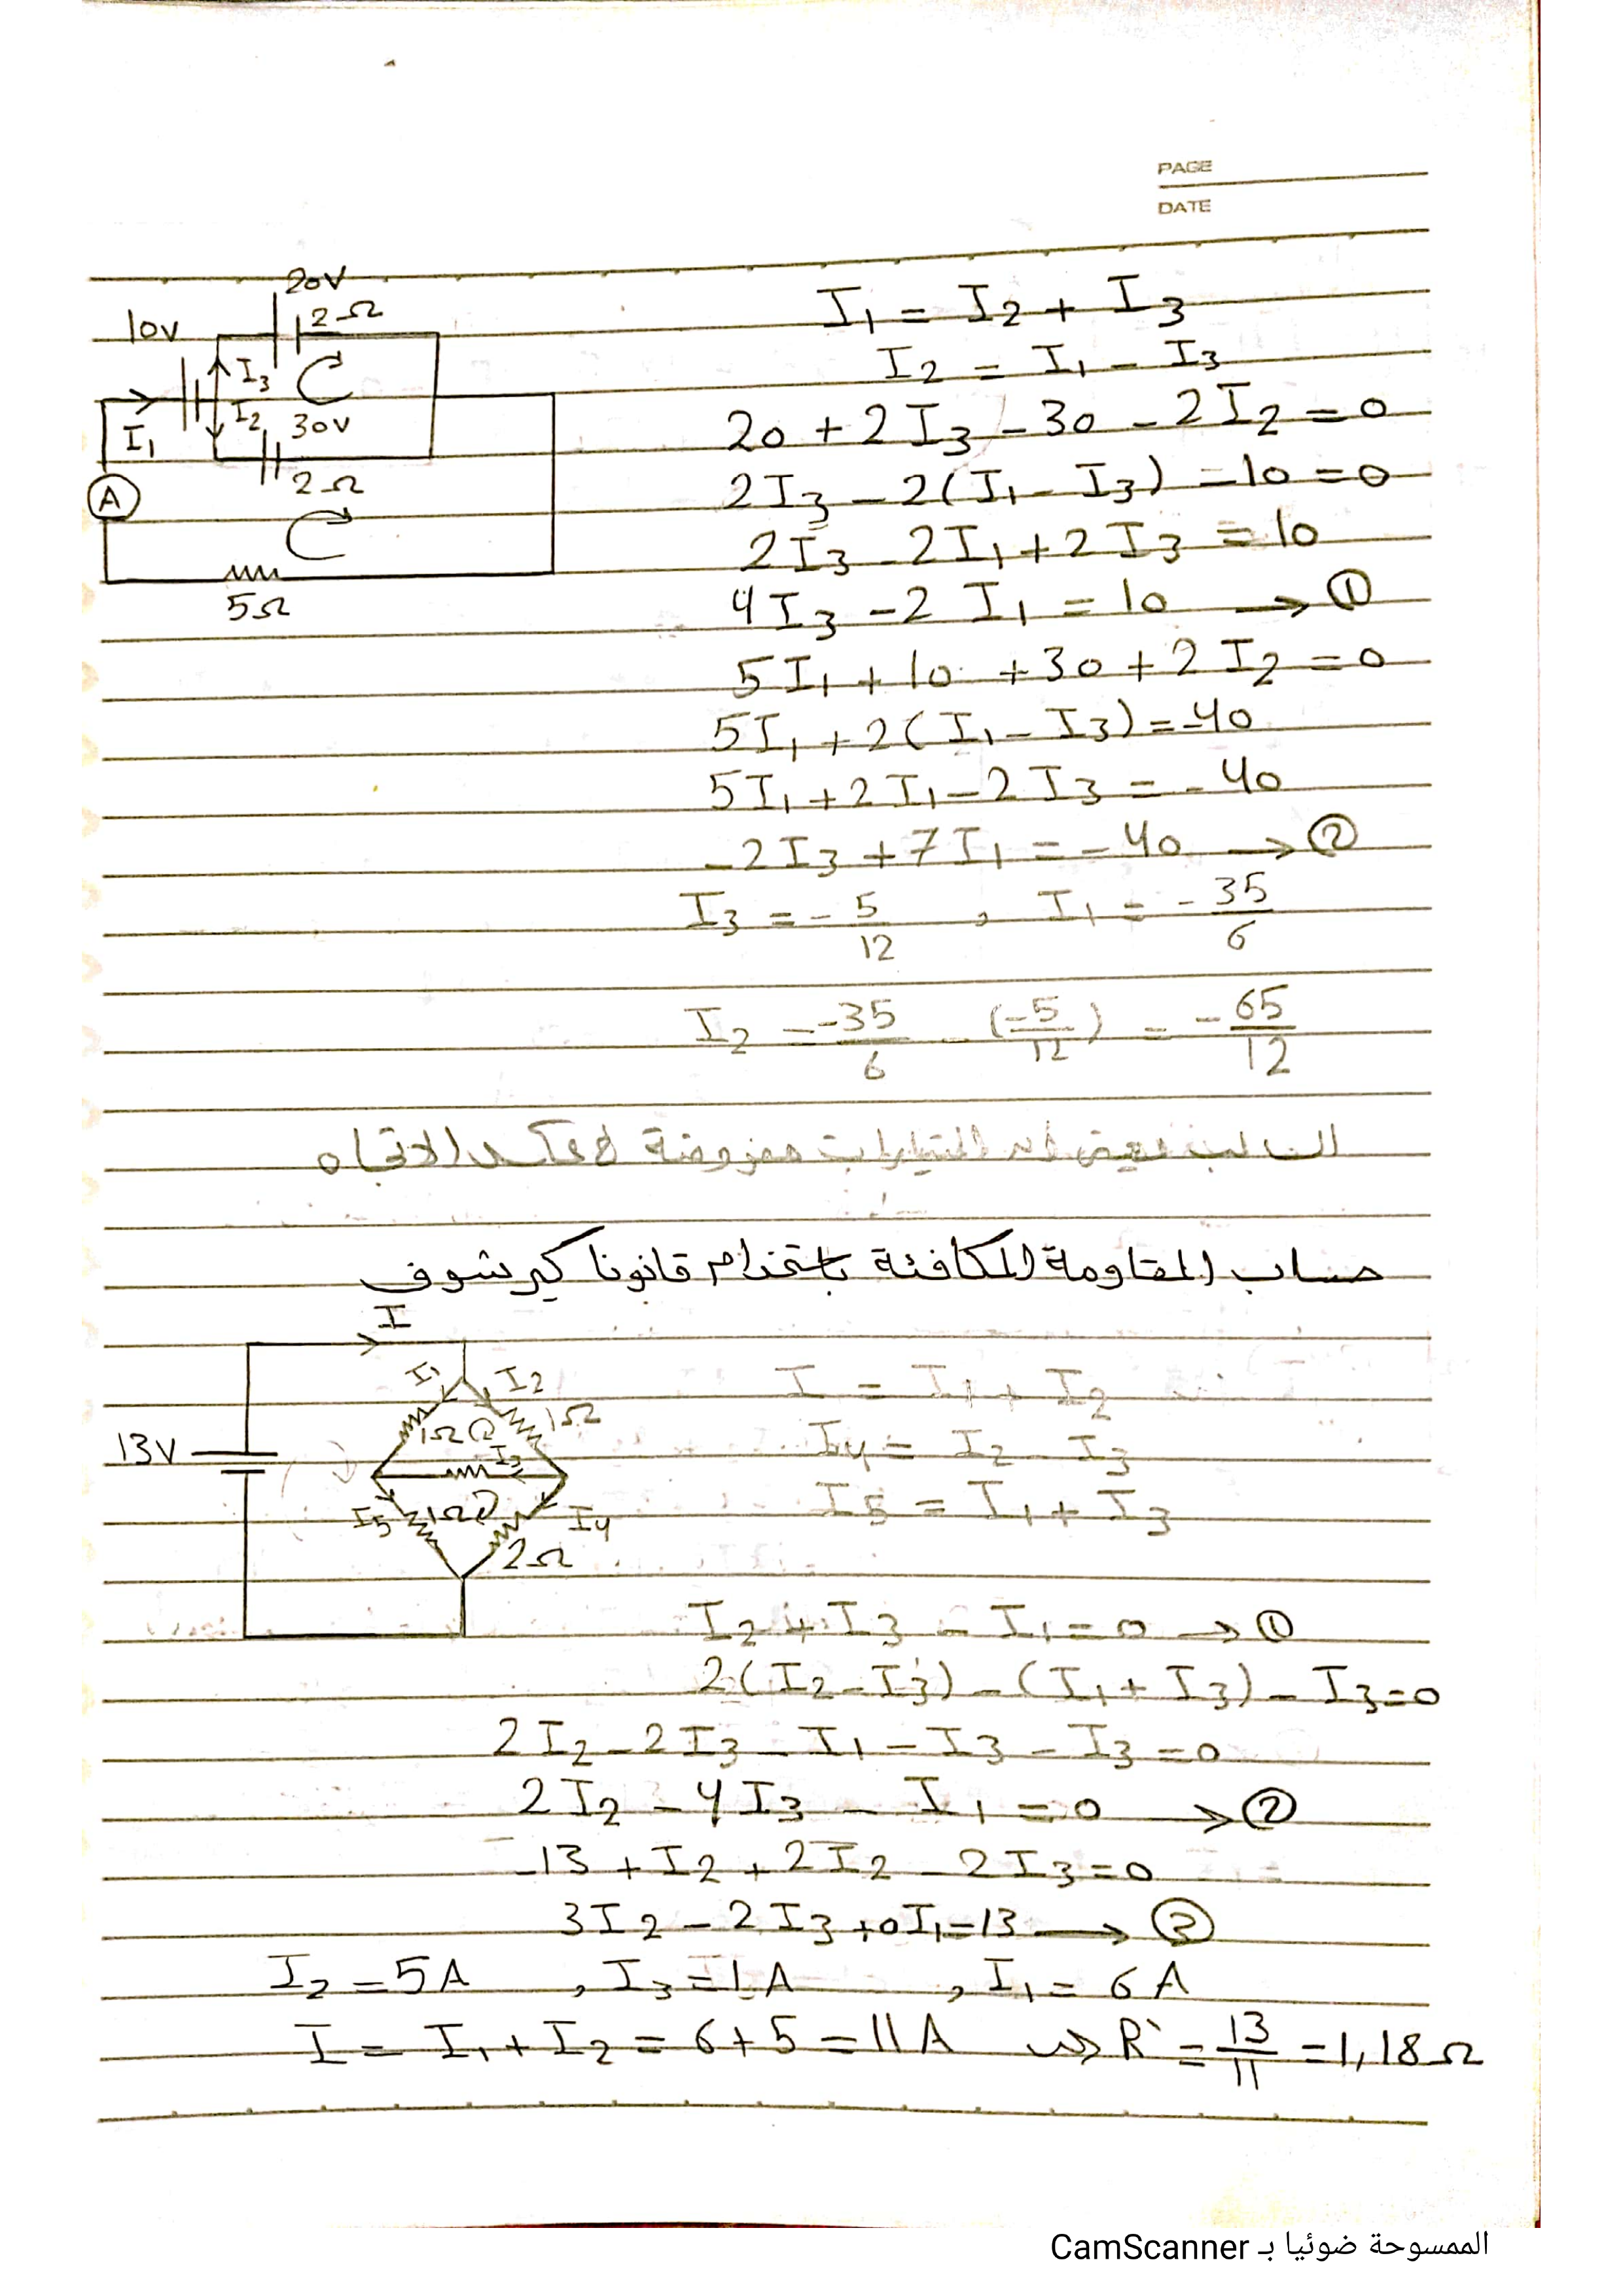 PAGE
DATE
20V
10V
2Ω
I3
I2
30V
I1
2Ω
A
5Ω
I1 = I2 + I3
I2 = I1 - I3
20 + 2I3 - 30 - 2I2 = 0
2I3 - 2(I1 - I3) - 10 = 0
2I3 - 2I1 + 2I3 = 10
4I3 - 2I1 = 10 → ①
5I1 + 10 + 30 + 2I2 = 0
5I1 + 2(I1 - I3) = -40
5I1 + 2I1 - 2I3 = -40
-2I3 + 7I1 = -40 → ②
I3 = -5/12 , I1 = -35/6
I2 = -35/6 - (-5/12) = -65/12
التيارات مفروضة الاتجاه
حساب المقاومة المكافئة باستخدام قانونا كيرشوف
I
I1 I2
1Ω 1Ω
13V
I3
I5 1Ω I4
2Ω
I = I1 + I2
I4 = I2 - I3
I5 = I1 + I3
I2 + I3 - I1 = 0 → ①
2(I2 - I3) - (I1 + I3) - I3 = 0
2I2 - 2I3 - I1 - I3 - I3 = 0
2I2 - 4I3 - I1 = 0 → ②
-13 + I2 + 2I2 - 2I3 = 0
3I2 - 2I3 + 0I1 = 13 → ③
I2 = 5A , I3 = 1A , I1 = 6A
I = I1 + I2 = 6 + 5 = 11A ⇝ R` = 13/11 = 1,18Ω
الممسوحة ضوئيا بـ CamScanner